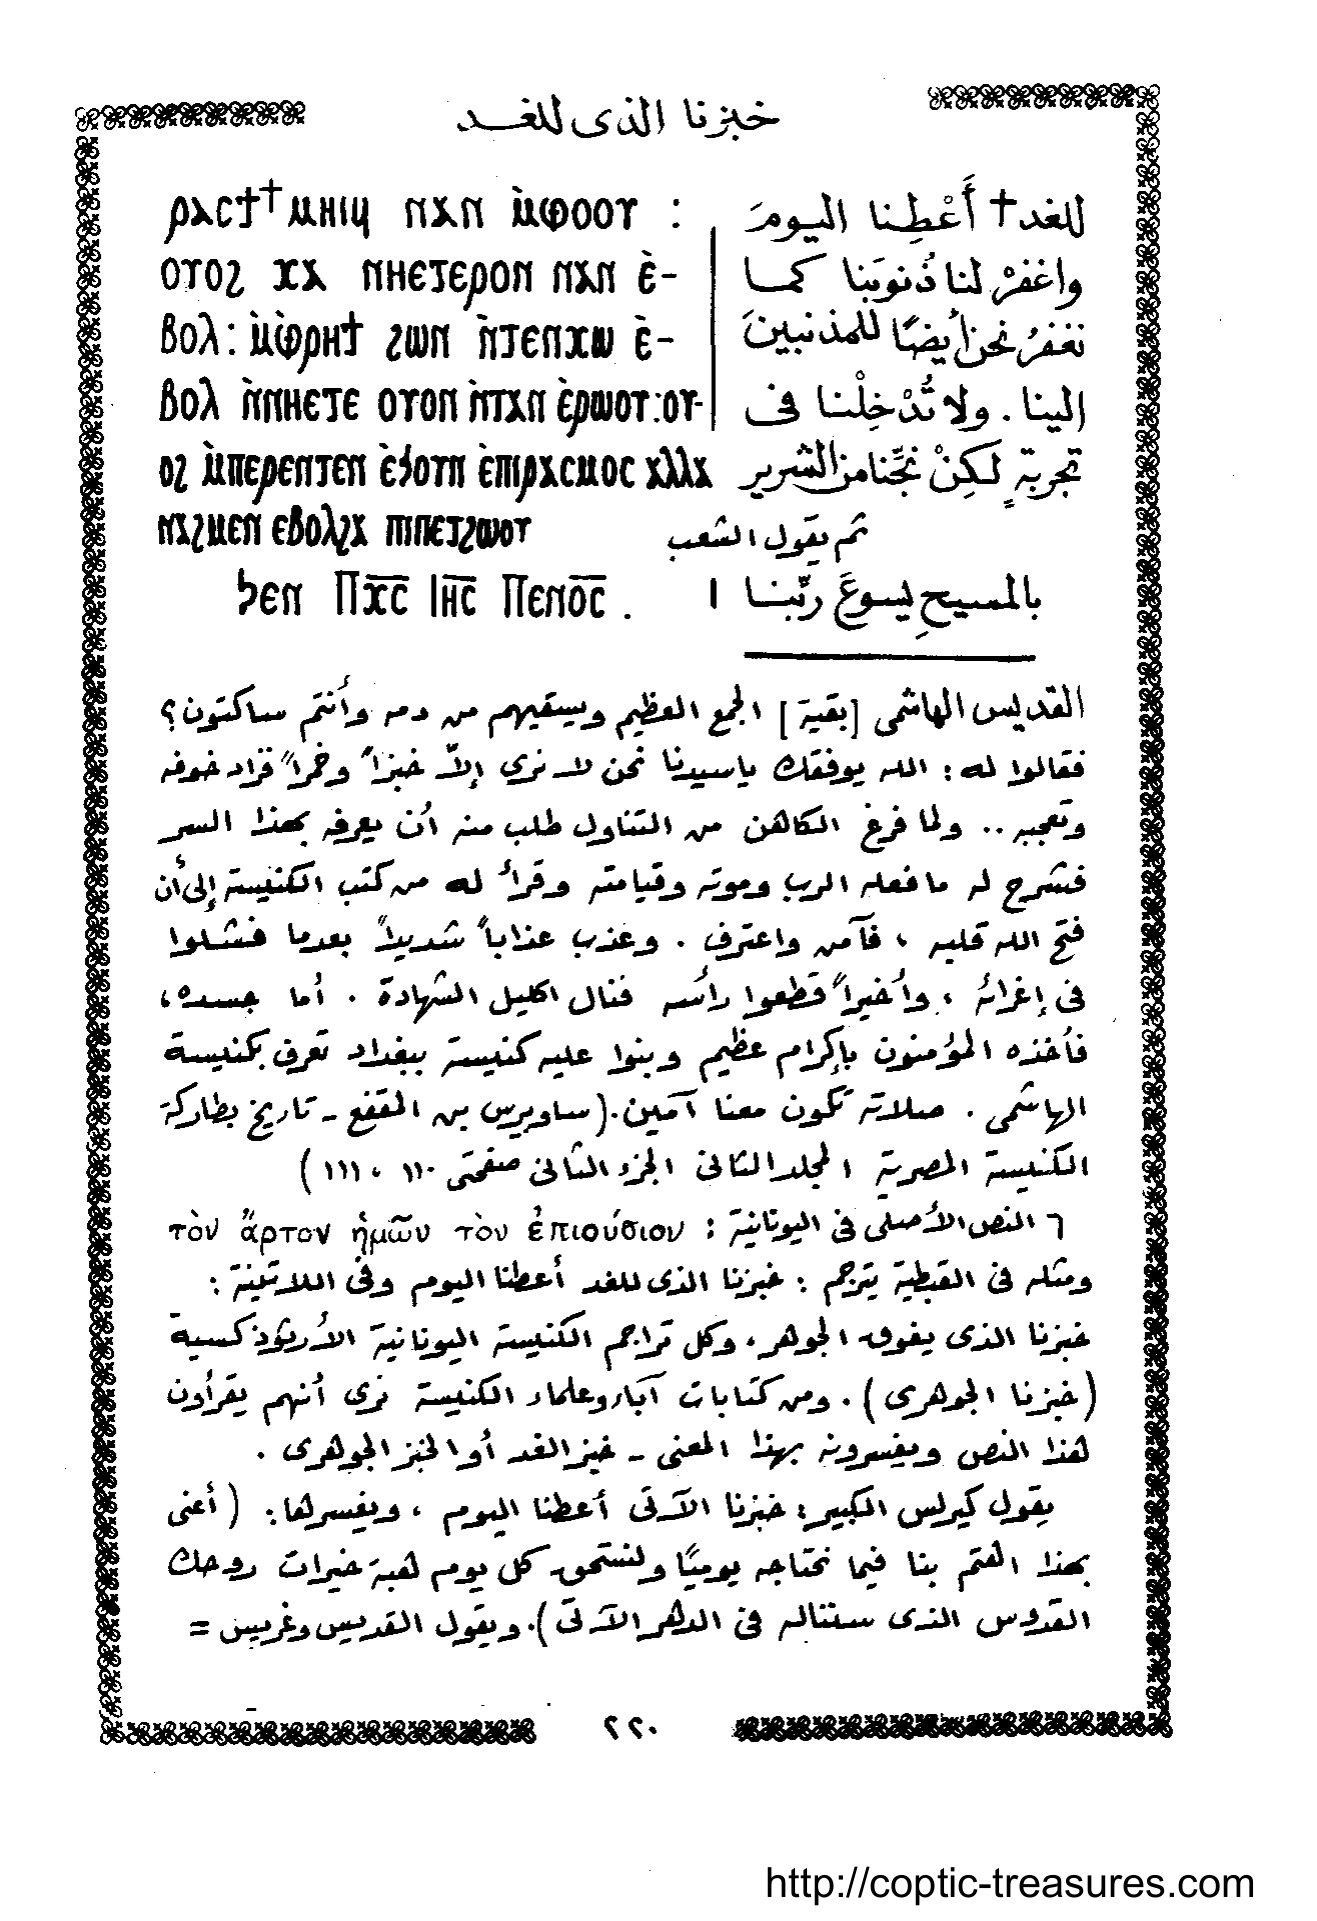 خبزنا الذى للغد
ⲣⲁⲥϯ† ⲙⲏⲓϥ ⲛⲁⲛ ⲙ̀ⲫⲟⲟⲩ :
للغد† أَعْطِنا اليومَ
ⲟⲩⲟϩ ⲭⲁ ⲛⲏⲉⲧⲉⲣⲟⲛ ⲛⲁⲛ ⲉ̀-
واغفرْ لنا ذُنوبَنا كما
ⲃⲟⲗ : ⲙ̀ⲫ̀ⲣⲏϯ ϩⲱⲛ ⲛ̀ⲧⲉⲛⲭⲱ ⲉ̀-
نغفرُ نحن أيضًا للمذنبينَ
ⲃⲟⲗ ⲛ̀ⲛⲏⲉⲧⲉ ⲟⲩⲟⲛ ⲛ̀ⲧⲁⲛ ⲉ̀ⲣⲱⲟⲩ : ⲟⲩ-
إلينا . ولا تُدْخِلْنا فى
ⲟϩ ⲙ̀ⲡⲉⲣⲉⲛⲧⲉⲛ ⲉ̀ϧⲟⲩⲛ ⲉ̀ⲡⲓⲣⲁⲥⲙⲟⲥ ⲁⲗⲗⲁ
تجربةٍ لكِنْ نجِّنا من الشرير
ⲛⲁϩⲙⲉⲛ ⲉⲃⲟⲗϩⲁ ⲡⲓⲡⲉⲧϩⲱⲟⲩ
ثم يقول الشعب
ϧⲉⲛ Ⲡⲭ̅ⲥ̅ Ⲓⲏ̅ⲥ̅ Ⲡⲉⲛⲟ̅ⲥ̅ .
بالمسيحِ يسوعَ ربِّنا
القديس الهاشمى [بقية] الجمع العظيم ويسقيهم من دمه وأنتم ساكتون؟
فقالوا له : الله يوفقك ياسيدنا نحن لا نرى إلاّ خبزاً وخمراً فزاد خوفه
وتعجبه .. ولما فرغ الكاهن من التناول طلب منه أن يعرفه بهذا السر
فشرح له ما فعله الرب وموته وقيامته وقرأ له من كتب الكنيسة إلى أن
فتح الله قلبه ، فآمن واعترف . وعذب عذاباً شديداً بعدما فشلوا
فى إغرائه ، وأخيراً قطعوا رأسه فنال اكليل الشهادة . أما جسده ،
فأخذه المؤمنون بإكرام عظيم وبنوا عليه كنيسة ببغداد تعرف بكنيسة
الهاشمى . صلاته تكون معنا آمين . (ساويرس بن المقفع - تاريخ بطاركة
الكنيسة المصرية المجلد الثانى الجزء الثانى صفحتى ١١٠ ، ١١١ )
٦ النص الأصلى فى اليونانية : τὸν ἄρτον ἡμῶν τὸν ἐπιούσιον
ومثله فى القبطية يترجم : خبزنا الذى للغد أعطنا اليوم وفى اللاتينة :
خبزنا الذى يفوق الجوهر ، وكل تراجم الكنيسة اليونانية الأرثوذكسية
(خبزنا الجوهرى ) . ومن كتابات آباء وعلماء الكنيسة نرى أنهم يقرأون
هذا النص ويفسرونه بهذا المعنى - خبز الغد أو الخبز الجوهرى .
يقول كيرلس الكبير : خبزنا الآتى أعطنا اليوم ، ويفسرها : ( أعنى
بهذا اهتم بنا فيما نحتاجه يوميًا ولنستحق كل يوم هبة خيرات روحك
القدوس الذى سنناله فى الدهر الآتى ) . ويقول القديس وغريس =
٢٢٠
http://coptic-treasures.com